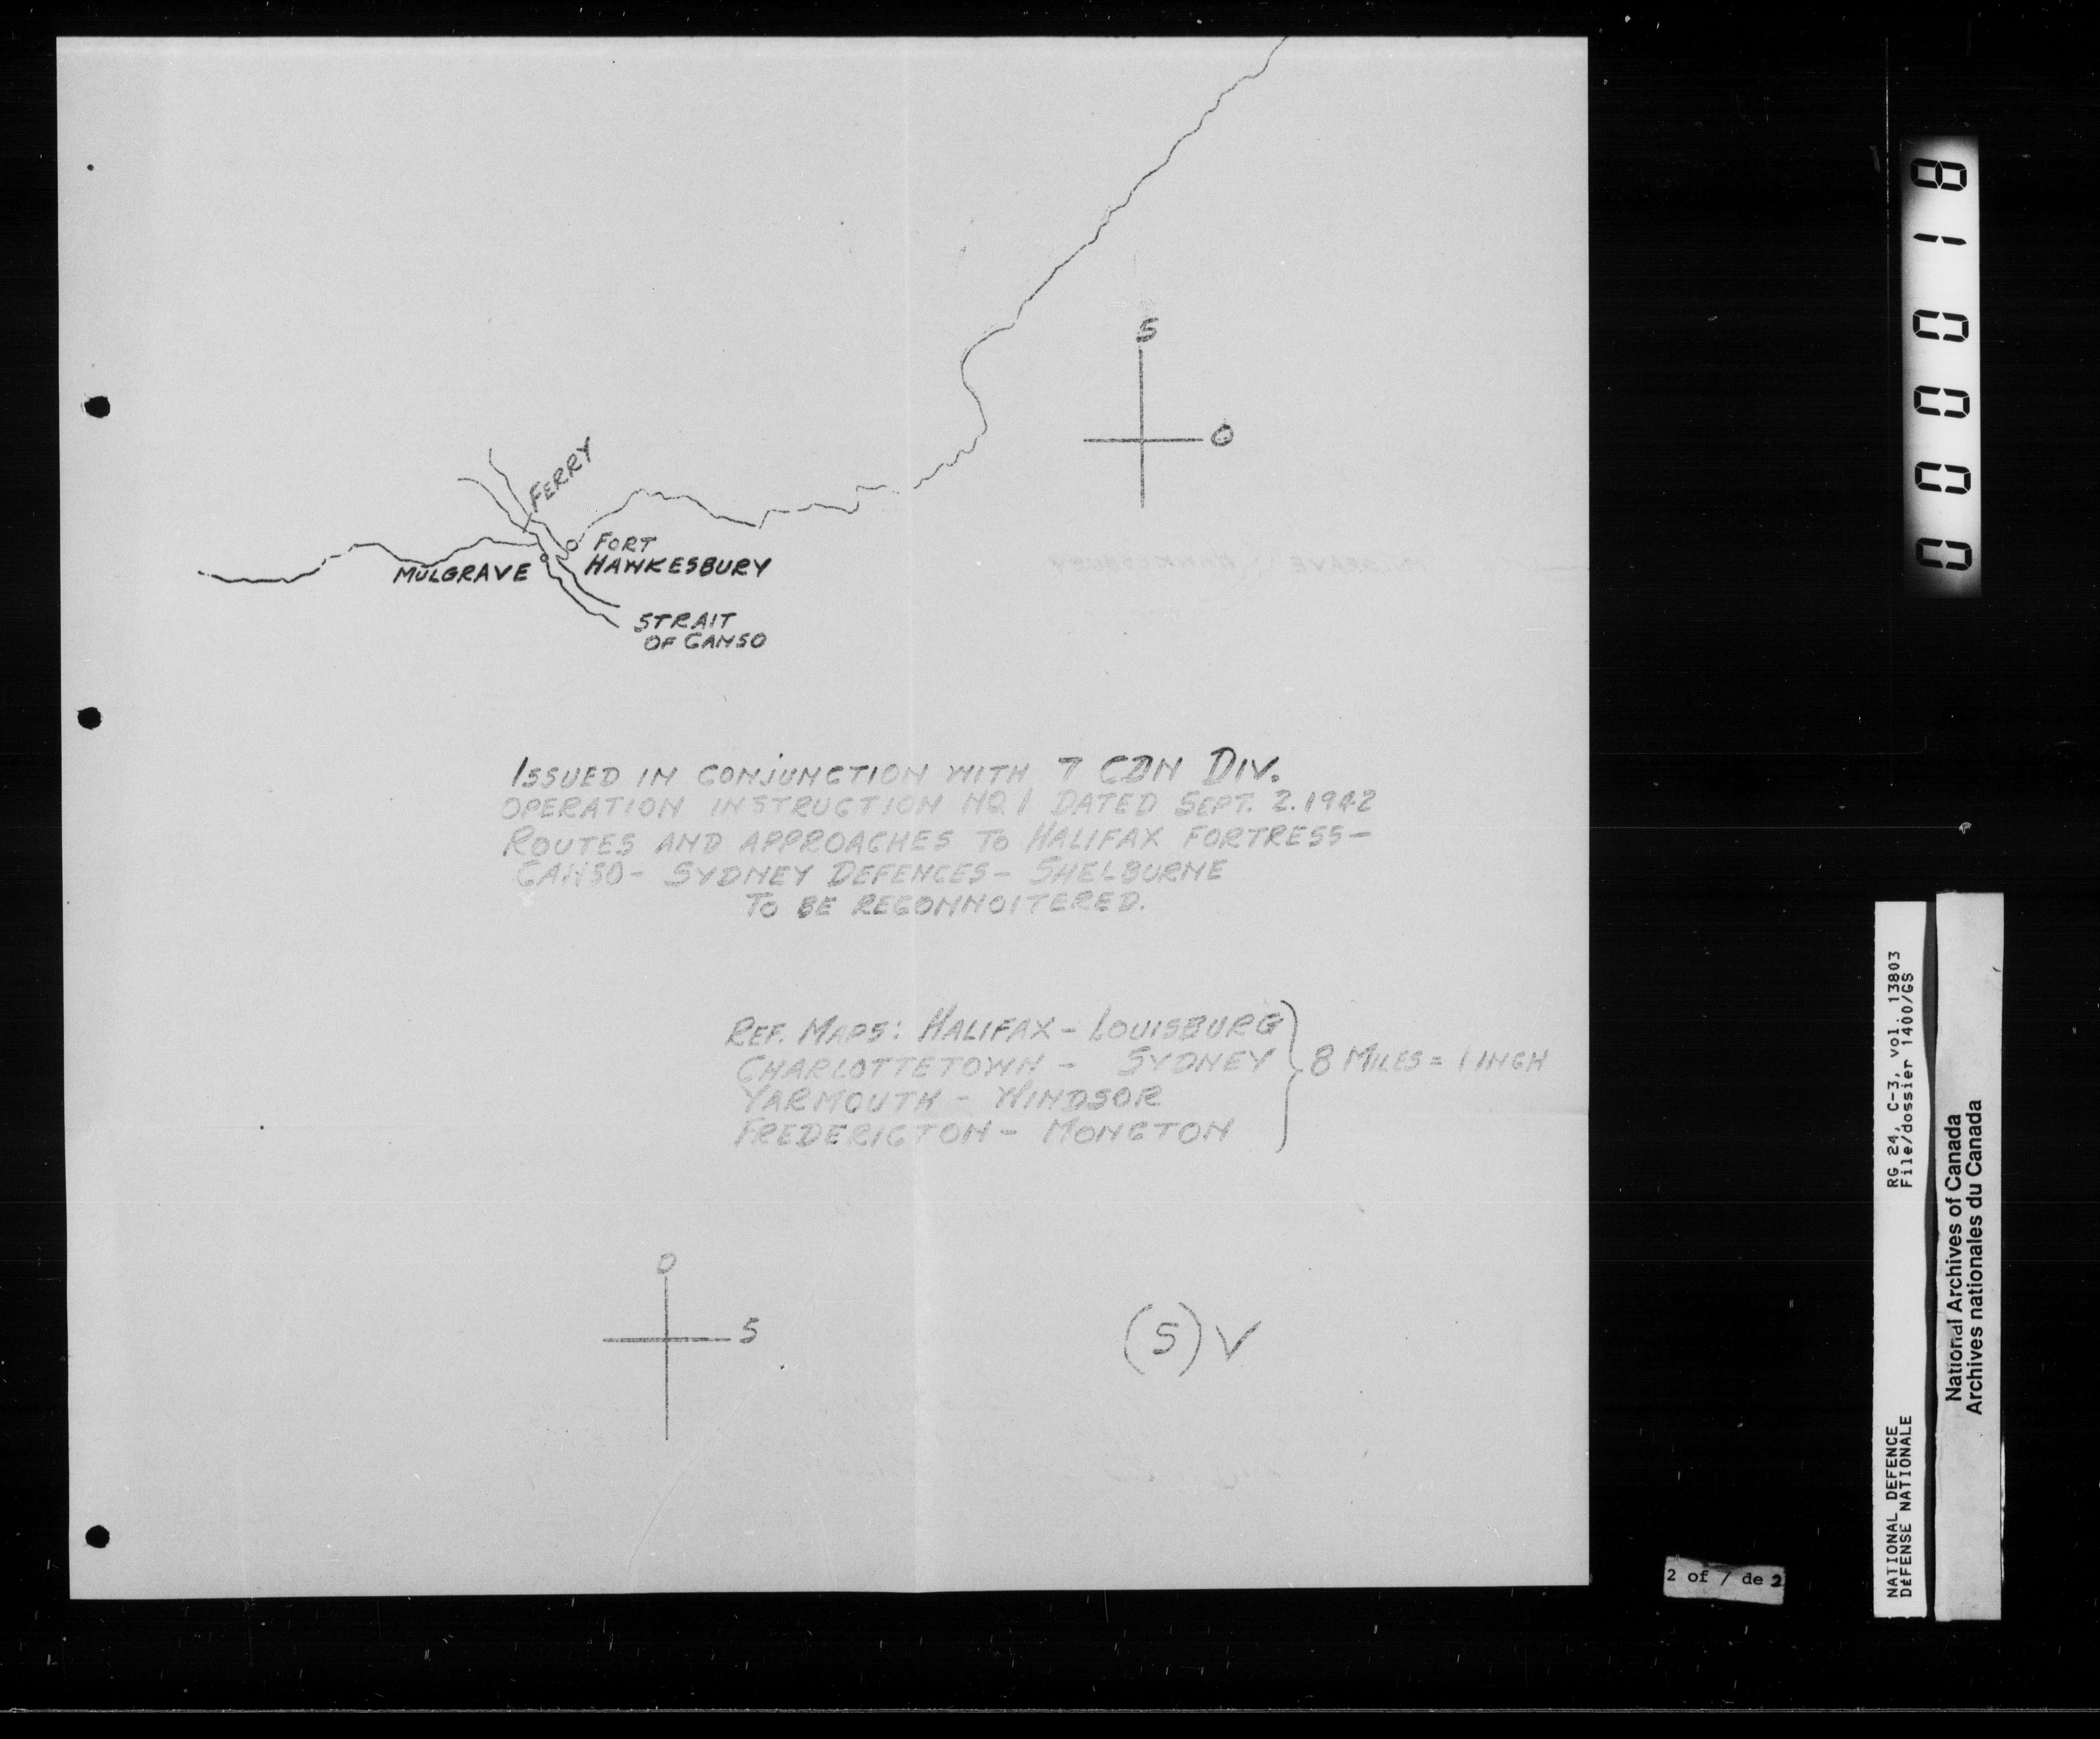 S
O
FERRY
FORT
HAWKESBURY
MULGRAVE
STRAIT
OF CANSO
MULGRAVE HAWKESBURY
ISSUED IN CONJUNCTION WITH 7 CDN DIV.
OPERATION INSTRUCTION NO.1 DATED SEPT. 2. 1942
ROUTES AND APPROACHES TO HALIFAX FORTRESS-
CANSO- SYDNEY DEFENCES- SHELBURNE
TO BE RECONNOITERED.
REF. MAPS: HALIFAX - LOUISBURG
CHARLOTTETOWN - SYDNEY
YARMOUTH - WINDSOR
FREDERICTON - MONCTON
8 MILES = 1 INCH
O
S
(S) V
000018
RG 24, C-3, vol. 13803
File/dossier 1400/GS
NATIONAL DEFENCE
DÉFENSE NATIONALE
National Archives of Canada
Archives nationales du Canada
2 of / de 2